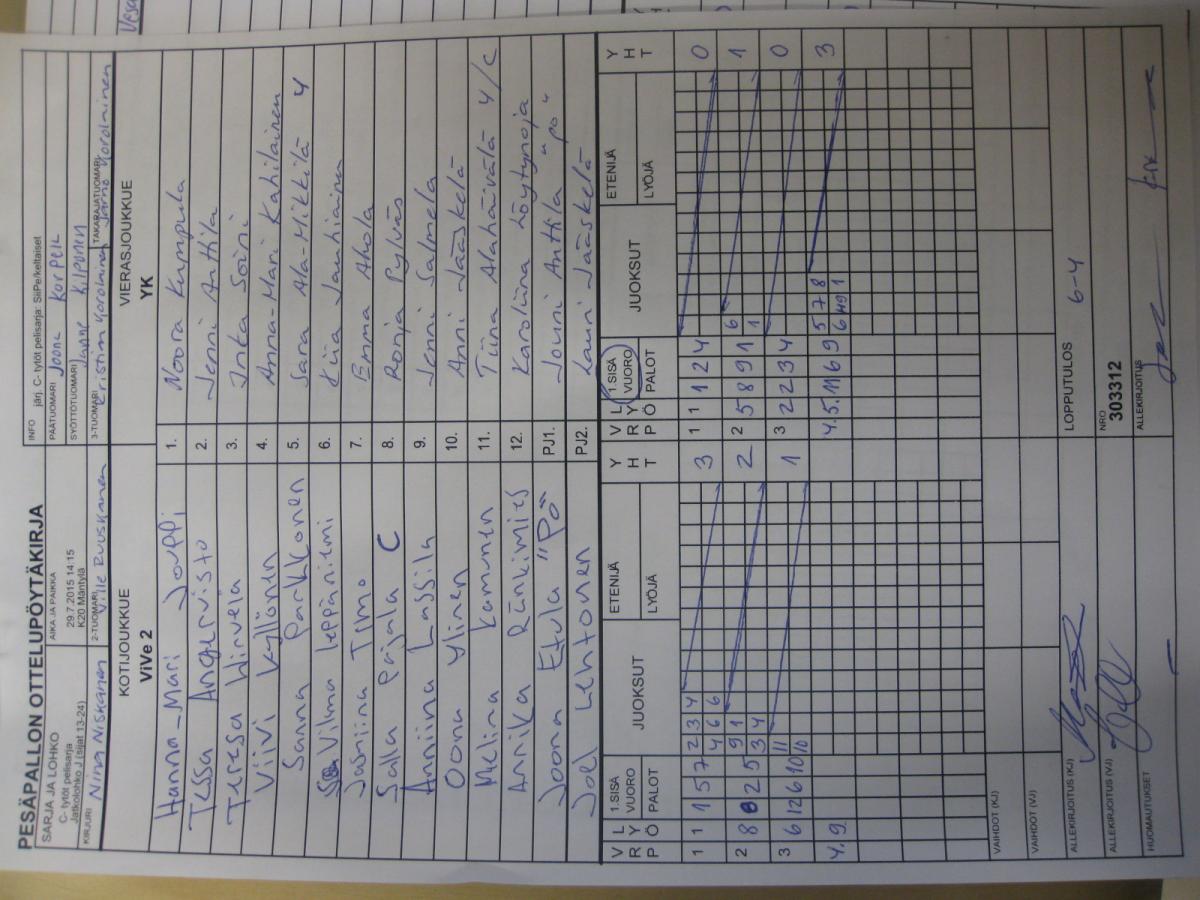 PESÄPALLON OTTELUPÖYTÄKIRJA
SARJA JA LOHKO
C- tytöt pelisarja
Jatkolohko J (sijat 13-24)
AIKA JA PAIKKA
29.7.2015 14:15
K20 Mäntylä
INFO järj. C- tytöt pelisarja: SiiPe/keltaiset
PÄÄTUOMARI Joona Korpela
SYÖTTÖTUOMARI Janne Kilponen
KIRJURI Nina Niskanen
2-TUOMARI Ville Ruuskanen
3-TUOMARI
TAKARAJATUOMARI
KOTIJOUKKUE
ViVe 2
VIERASJOUKKUE
YK
Hanna-Mari Jouppi 1. Noora Kumpula
Tessa Angervisto 2. Jenni Anttila
Teresa Hirvelä 3. Inka Soini
Viivi Kyllönen 4. Anna-Mari Kahilainen
Sanna Parkkonen 5. Sara Ala-Mikkilä Y
Vilma Leppäniemi 6. Kiia Jauhiainen
Jasmiina Timo 7. Emma Ahola
Salla Pirjala C 8. Ronja Pylväs
Anniina Lassila 9. Jenni Salmela
Oona Ylinen 10. Anni Jääskelä
Melina Lamunen 11. Tiina Alahäivälä Y/C
Annika Rünkimies 12. Karoliina Löytynoja
Joona Etula "Pö" PJ1. Jouni Anttila "po"
Joel Lehtonen PJ2. Lauri Jääskelä
V R P
L Y Ö
1.SISÄ VUORO
PALOT
JUOKSUT
ETENIJÄ
LYÖJÄ
Y H T
V R P
L Y Ö
1.SISÄ VUORO
PALOT
JUOKSUT
ETENIJÄ
LYÖJÄ
Y H T
1 1 1 5 7 2 3 4 3 1 1 1 2 4 0
4 6 6
2 8 8 2 5 9 1 2 2 5 8 9 1 6 1
3 4 1
3 6 12 6 10 11 1 3 2 2 3 4 0
10
4. 9 4. 5. 11 6 9 5 7 8 3
6 1
VAIHDOT (KJ)
VAIHDOT (VJ)
ALLEKIRJOITUS (KJ)
LOPPUTULOS 6-4
ALLEKIRJOITUS (VJ)
NRO
303312
HUOMAUTUKSET
ALLEKIRJOITUS